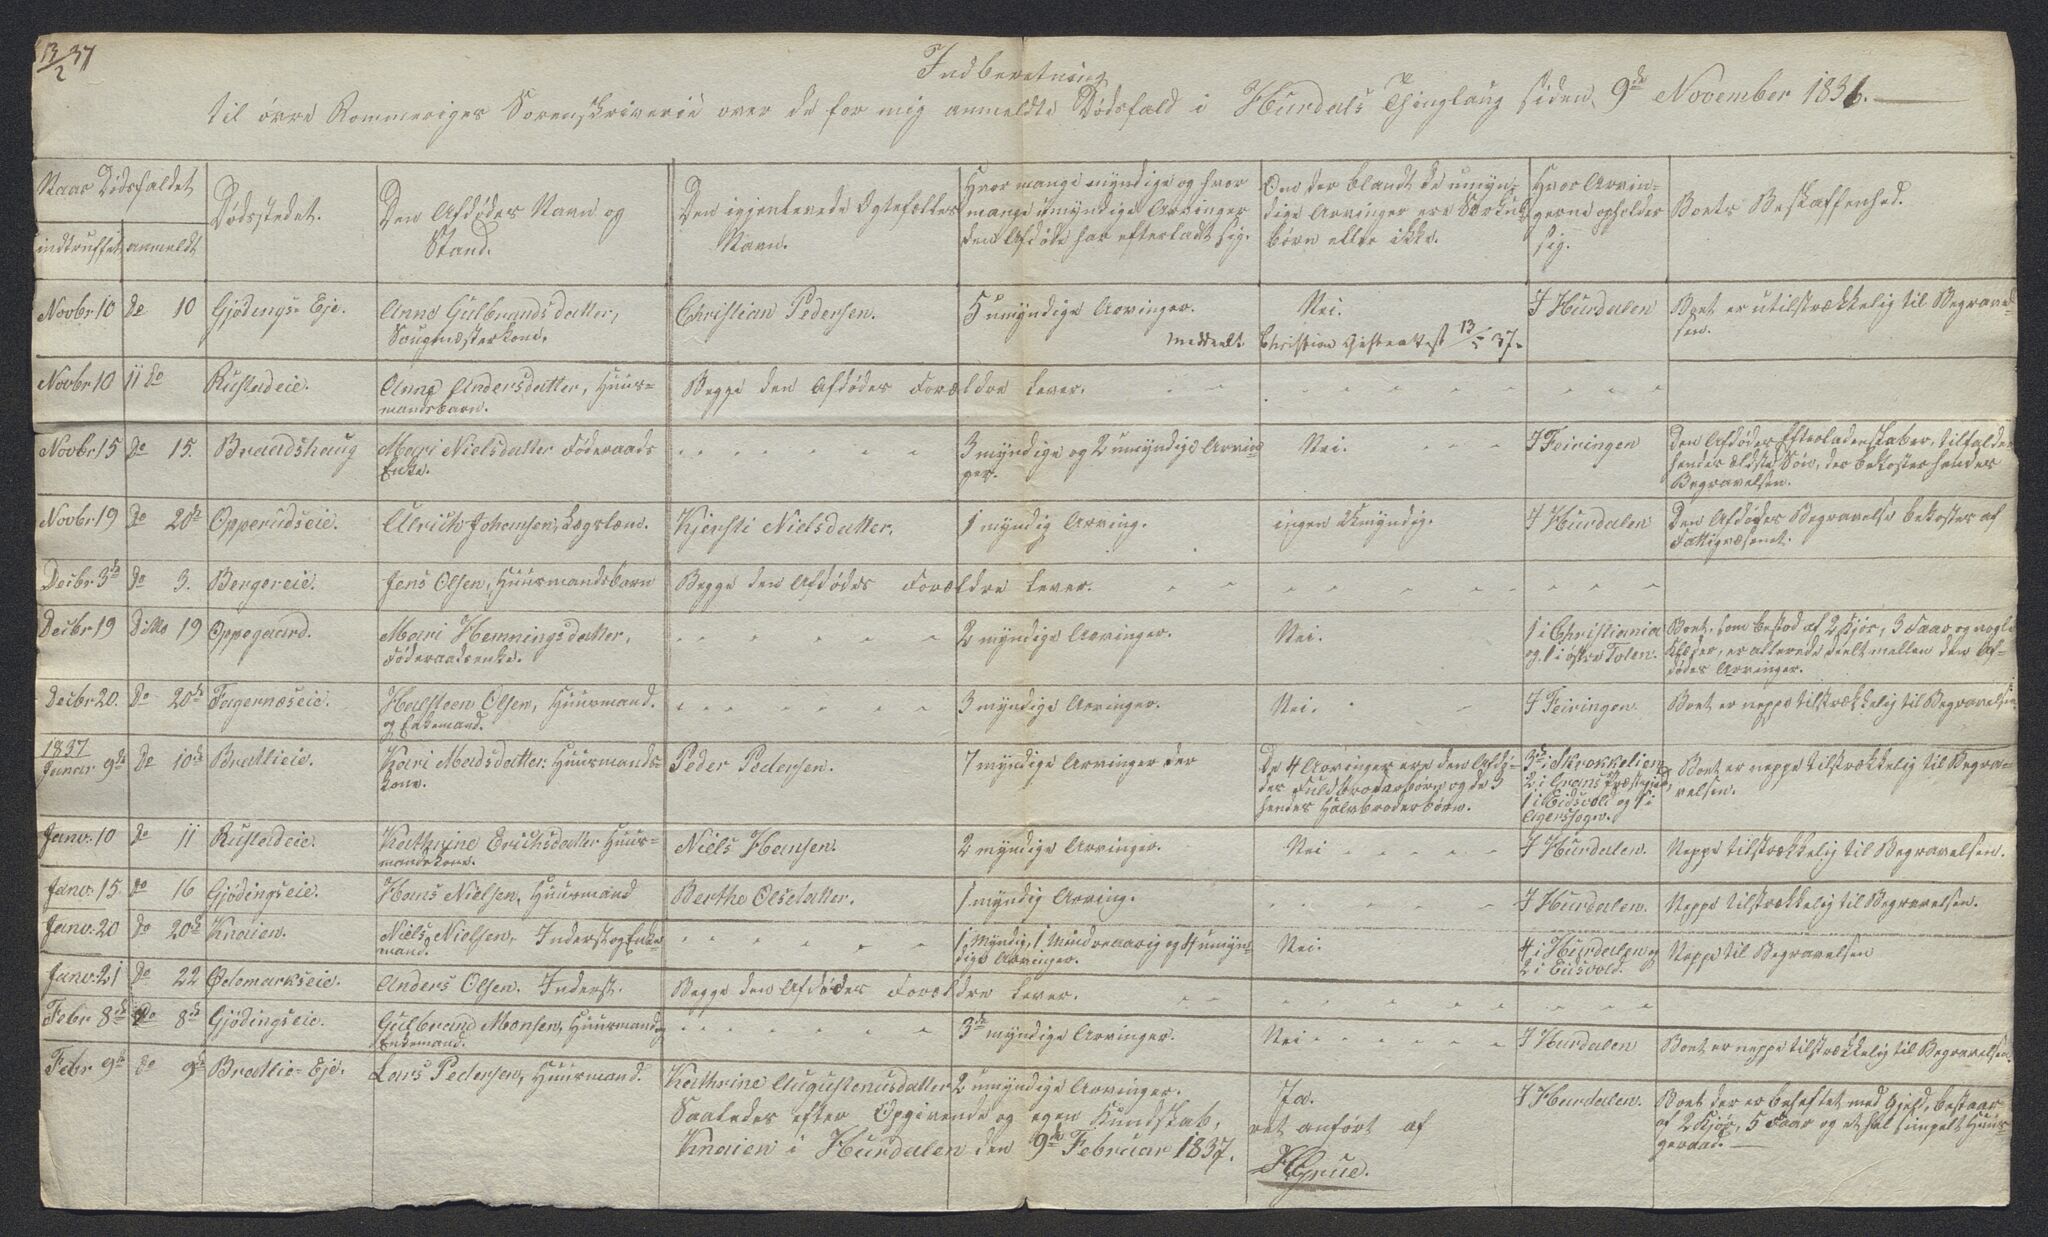 13/2 37
Indberetning
til øvre Rommeriges Sorenskriverie over de for mig anmeldte Dødsfald i Hurdals Thinglaug siden 9de November 1836.
Naar Dødsfaldet
indtruffet
anmeldt
Dødsstedet.
Den Afdødes Navn og
Stand.
Den igjenlevende Ægtefælles
Navn.
Hvor mange myndige og hvor
mange umyndige Arvinger
den Afdøde har efterladt sig.
Om der blandt de umyn-
dige Arvinger ere Særkuld-
børn eller ikke.
Hvor Arvin-
gerne opholder
sig.
Boets Beskaffenhed.
Novbr 10 do 10 Gjødings-Eje. Anne Gulbrandsdatter, Christian Pedersen. 5 umyndige Arvinger. Nei. I Hurdalen Boet er utilstrækkelig til Begravel-
kone. meddeelt Christian 13/2 37. sen.
Novbr 10 11 do Rustadeie. Anne Andersdatter, Huus- Begge den Afdødes Forældre lever.
mandsbarn.
Novbr 15 do 15. Braadshaug Mari Nielsdatter Føderaads 3 myndige og 2 umyndige Arvin- Nei. I Feiringen Den Afdødes Efterladenskaber, tilfalder
Enke. ger. hendes ældste Søn, der bekoster hendes
Begravelsen.
Novbr 19 do 20de Opperudseie. Ulrich Johansen, Lægslem. Kjersti Nielsdatter. 1 myndig Arving. ingen Umyndig. I Hurdalen Den Afdødes Begravelse bekostes af
Fattigvæsenet.
Decbr 3de do 3. Bergereie. Jens Olsen, Huusmandsbarn Begge den Afdødes Forældre lever.
Decbr 19 Ditto 19 Oppegaard. Mari Hemningsdatter, 2 myndige Arvinger. Nei. 1 i Christiania Boet, som bestod af 2 Kjør, 3 Faar og nogle
Føderaadsenke. og 1 i østre Toten. Klæder, er allerede deelt mellem den Af-
dødes Arvinger.
Decbr 20. do 20de Fagernæseie. Halsteen Olsen, Huusmand. 3 myndige Arvinger. Nei. I Feiringen. Boet er neppe tilstrækkelig til Begravelsen.
og Enkemand.
1837
Januar 9de do 10de Bratlieie. Kari Madsdatter. Huusmands- Peder Pedersen. 7 myndige Arvinger der De 4 Arvinger ere den Afdø- 3de i Skrukkelien Boet er neppe tilstrækkelig til Begra-
kone. des Fuldbroderbørn og de 3 2 i Grans Præstegjeld, velsen.
hendes Halvbroderbørn. 1 i Eidsvold og 1 i
Agerssogn.
Janv: 10 do 11 Rustadeie. Kathrine Erichsdatter Huus- Niels Hansen. 2 myndige Arvinger. Nei I Hurdalen. Neppe tilstrækkelig til Begravelsen.
mandskone.
Janv: 15 do 16 Gjødingseie. Hans Nielsen, Huusmand Berthe Olsdatter. 1 myndig Arving. I Hurdalen. Neppe tilstrækkelig til Begravelsen.
Janv: 20 do 20de Knaien. Niels Nielsen, Inderst og Enke- 1 Myndig, 1 Mindreaarig og 4 umyn- Nei. 4 i Hurdalen og Neppe til Begravelsen
mand. dige Arvinger. 2 i Eidsvold.
Janv: 21 do 22 Ødemarkseie. Anders Olsen. Inderst. Begge den Afdødes Forældre lever.
Febr 8de do 8de Gjødingseie. Gulbrand Monsen, Huusmand og 3de myndige Arvinger. Nei I Hurdalen Boet er neppe tilstrækkelig til Begravelsen.
Enkemand.
Febr 9de do 9de Bratlie-Eje. Lars Pedersen, Huusmand. Kathrine Augustenusdatter 2 umyndige Arvinger. Ja. I Hurdalen. Boet der er beheftet med Gjeld, bestaar
af 2 Kjør, 5 Faar og et Deel simpelt Huus-
geraad.
Saaledes efter Opgivende og egen Kundskab, ret anført af
Knaien i Hurdalen den 9de Februar 1837.
HGrue.